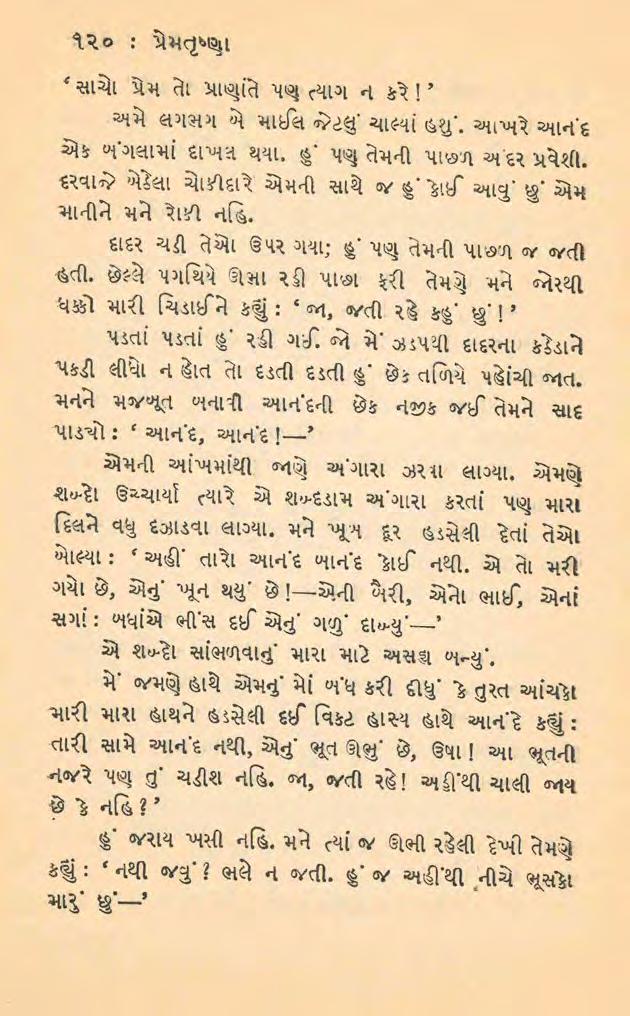 ૧૨૦ : પ્રેમતૃષ્ણા
‘સાચો પ્રેમ તો પ્રાણાંતે પણ ત્યાગ ન કરે!’
અમે લગભગ બે માઈલ જેટલું ચાલ્યાં હશું. આખરે આનંદ
એક બંગલામાં દાખલ થયા. હું પણ તેમની પાછળ અંદર પ્રવેશી.
દરવાજે બેઠેલા ચોકીદારે એમની સાથે જ હું કોઈ આવું છું એમ
માનીને મને રોકી નહિ.
દાદર ચડી તેઓ ઉપર ગયા; હું પણ તેમની પાછળ જ જતી
હતી. છેલ્લે પગથિયે ઊભા રહી પાછા ફરી તેમણે મને જોરથી
ધક્કો મારી ચિડાઈને કહ્યું : ‘જા, જતી રહે કહું છું!’
પડતાં પડતાં હું રહી ગઈ. જો મેં ઝડપથી દાદરના કઠેડાને
પકડી લીધો ન હોત તો દડતી દડતી હું છેક તળિયે પહોંચી જાત.
મનને મજબૂત બનાવી આનંદની છેક નજીક જઈ તેમને સાદ
પાડ્યો : ‘આનંદ, આનંદ!—’
એમની આંખમાંથી જાણે અંગારા ઝરવા લાગ્યા. એમણે
શબ્દો ઉચ્ચાર્યા ત્યારે એ શબ્દડામ અંગારા કરતાં પણ મારા
દિલને વધુ દઝાડવા લાગ્યા. મને ખૂબ દૂર હડસેલી દેતાં તેઓ
બોલ્યા : ‘અહીં તારો આનંદ બાનંદ કોઈ નથી. એ તો મરી
ગયો છે, એનું ખૂન થયું છે!—એની બૈરી, એનો ભાઈ, એનાં
સગાં : બધાંએ ભીંસ દઈ એનું ગળું દાબ્યું—’
એ શબ્દો સાંભળવાનું મારા માટે અસહ્ય બન્યું.
મેં જમણે હાથે એમનું મોં બંધ કરી દીધું કે તુરત આંચકો
મારી મારા હાથને હડસેલી દઈ વિકટ હાસ્ય હાથે આનંદે કહ્યું :
તારી સામે આનંદ નથી, એનું ભૂત ઊભું છે, ઉષા! આ ભૂતની
નજરે પણ તું ચડીશ નહિ. જા, જતી રહે! અહીંથી ચાલી જાય
છે કે નહિ?’
હું જરાય ખસી નહિ. મને ત્યાં જ ઊભી રહેલી દેખી તેમણે
કહ્યું : ‘નથી જવું? ભલે ન જતી. હું જ અહીંથી નીચે ભૂસકો
મારું છું—’